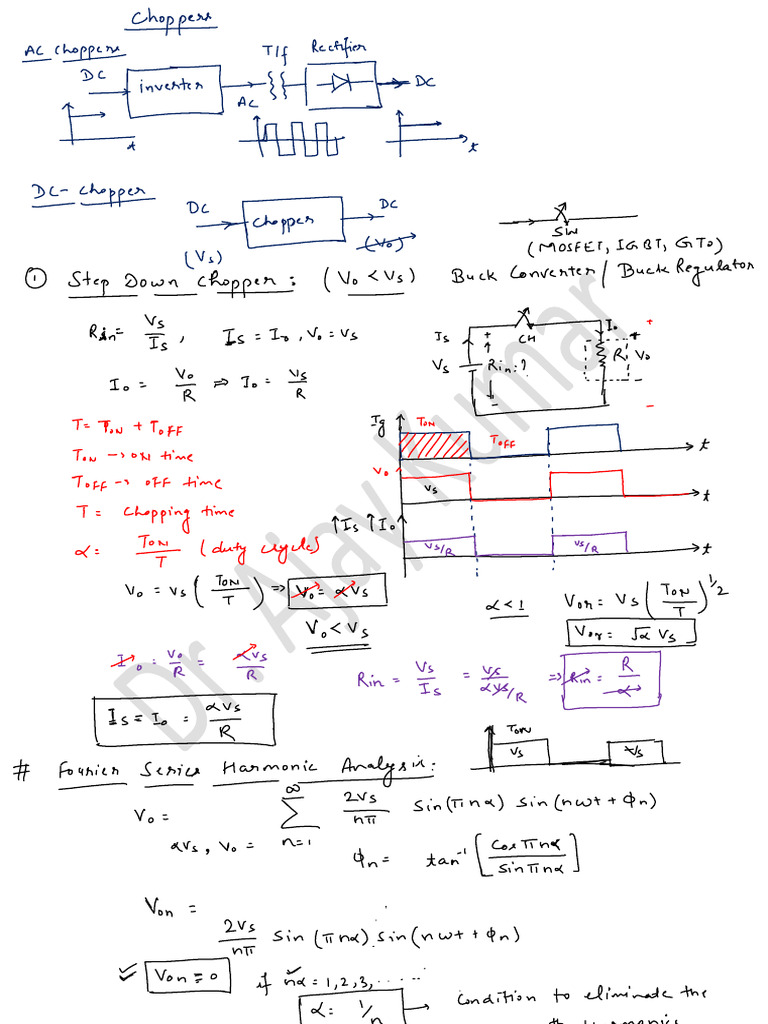 Choppers
AC Choppers
DC
inverter
AC
T/f
Rectifier
DC
α
t
DC- Chopper
DC
(Vs)
Chopper
DC
(Vo)
SW
(MOSFET, IGBT, GTO)
① Step Down Chopper: (Vo < Vs) Buck Converter / Buck Regulator
Rin = Vs/Is, Is = Io, Vo = Vs
Io = Vo/R ⇒ Io = Vs/R
Is
Vs
+
Rin=?
-
CH
Io
R
+
Vo
+
-
T = TON + TOFF
TON → ON time
TOFF → OFF time
T = Chopping time
α = TON/T (duty cycle)
Ig
TON
TOFF
t
Vo
Vs
t
↑Is ↑Io
Vs/R
Vs/R
t
Vo = Vs (TON/T) ⇒ Vo = αVs
Vo < Vs
α < 1
Vor = Vs (TON/T)^1/2
Vor = √α Vs
Io = Vo/R = αVs/R
Rin = Vs/Is = Vs/αVs/R ⇒ Rin = R/α
Is = Io = αVs/R
TON
Vs
Vs
# Fourier Series Harmonic Analysis:
Vo = ∑ n=1 ∞ 2Vs/nπ sin(πnα) sin(nωt + φn)
αVs, Vo =
φn = tan⁻¹ [cosπnα/sinπnα]
Von =
2Vs/nπ sin(πnα) sin(nωt + φn)
✓ Von = 0 if nα = 1,2,3, ......
α = 1/n → Condition to eliminate the